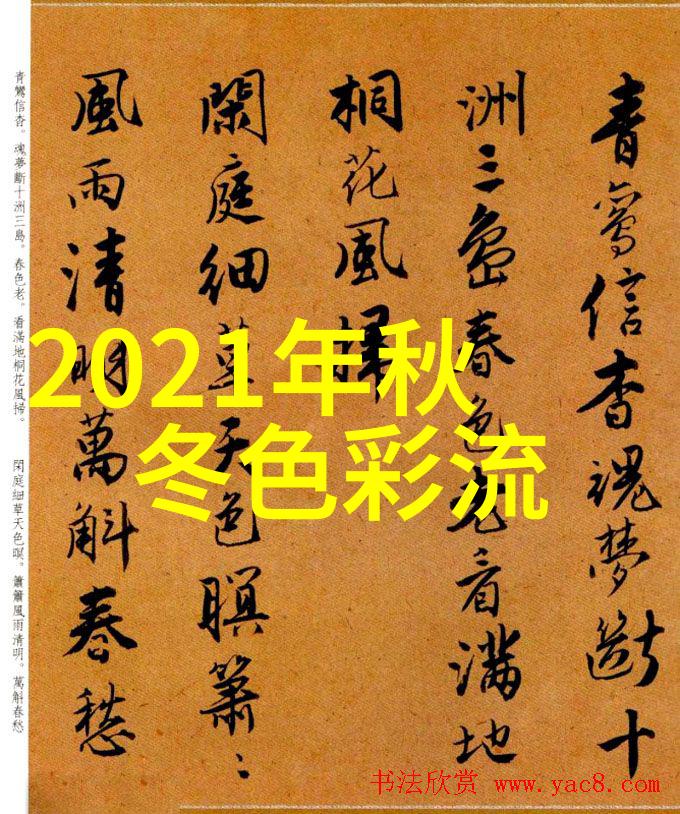 青鸞信杳魂夢斷十
洲三島春色老看滿地
桐花風掃
閑庭細草天色暝簫〻
風雨清明萬斛春愁
青鸞信杳。魂夢斷十洲三島。春色老。看滿地桐花風掃。 閑庭細草天色暝。簫簫風雨清明。萬斛春愁
2021年秋
冬色彩流
书法欣赏 www.yac8.com